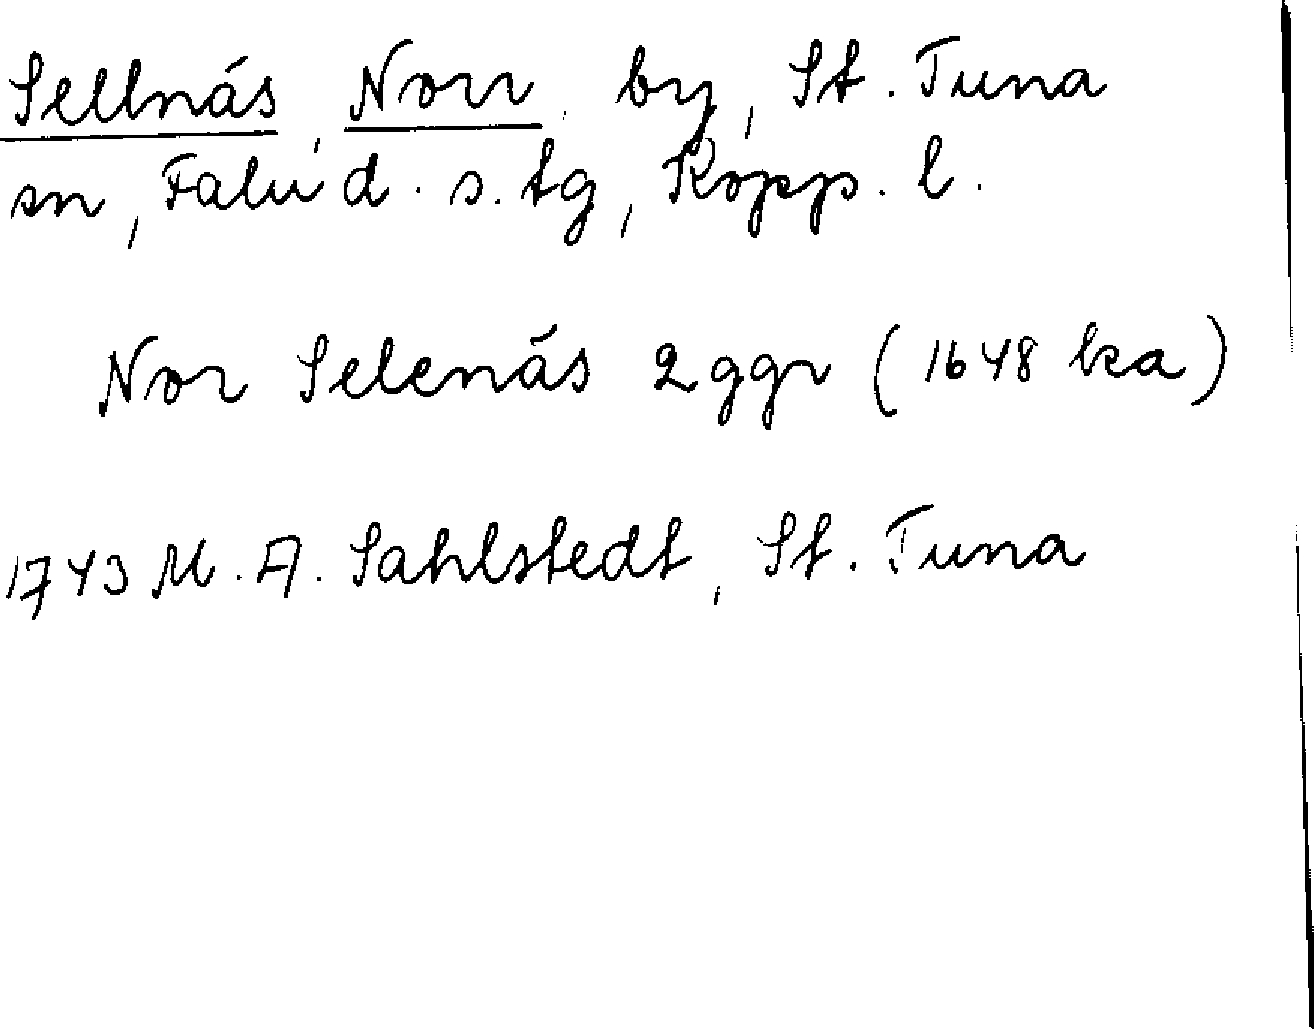 Sellnäs, Norr, by, St. Tuna
sn, Falu d. s. tg, Kopp. l.
Nor Selenäs 2 ggr (1648 ka)
1743 M. A. Sahlstedt, St. Tuna